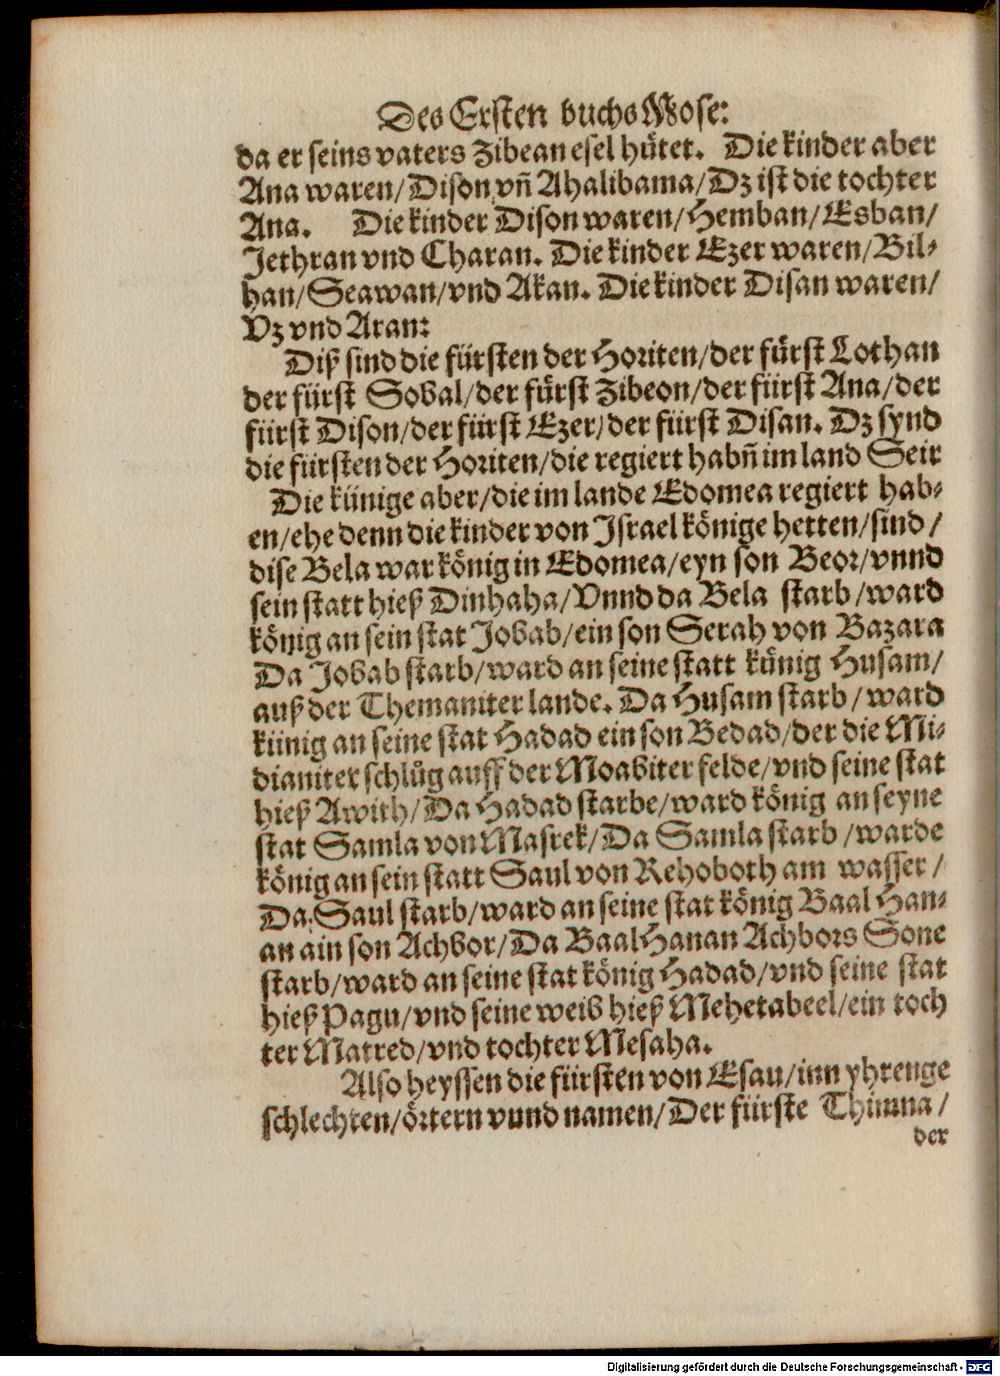 Des Ersten buchs Mose:
da er seins vaters Zibean esel hütet. Die kinder aber
Ana waren/Dison vñ Ahalibama/Dz ist die tochter
Ana. Die kinder Dison waren/Hemban/Esban/
Jethran vnd Charan. Die kinder Ezer waren/Bil-
han/Seawan/vnd Akan. Die kinder Disan waren/
Vz vnd Aran:
Diß sind die fürsten der Horiten/der fürst Lothan
der fürst Sobal/der fürst Zibeon/der fürst Ana/der
fürst Dison/der fürst Ezer/der fürst Disan. Dz synd
die fürsten der Horiten/die regiert habñ im land Seir
Die künige aber/die im lande Edomea regiert hab-
en/ehe denn die kinder von Jsrael könige hetten/sind/
dise Bela war könig in Edomea/eyn son Beor/vnnd
sein statt hieß Dinhaha/Vnnd da Bela starb/ward
könig an sein stat Jobab/ein son Serah von Bazara
Da Jobab starb/ward an seine statt künig Husam/
auß der Themaniter lande. Da Husam starb/ward
künig an seine stat Hadad ein son Bedad/der die Mi-
dianiter schlůg auff der Moabiter felde/vnd seine stat
hieß Awith/Da Hadad starbe/ward könig an seyne
stat Samla von Masrek/Da Samla starb/warde
könig an sein statt Saul von Rehoboth am wasser/
Da Saul starb/ward an seine stat könig Baal Han-
an ain son Achbor/Da Baal Hanan Achbors Sone
starb/ward an seine stat könig Hadad/vnd seine stat
hieß Pagu/vnd seine weib hieß Mehetabeel/ein toch
ter Matred/vnd tochter Mesaha.
Also heyssen die fürsten von Esau/inn yhrenge
schlechten/örtern vnnd namen/Der fürste Thimna/
der
Digitalisierung gefördert durch die Deutsche Forschungsgemeinschaft - DFG